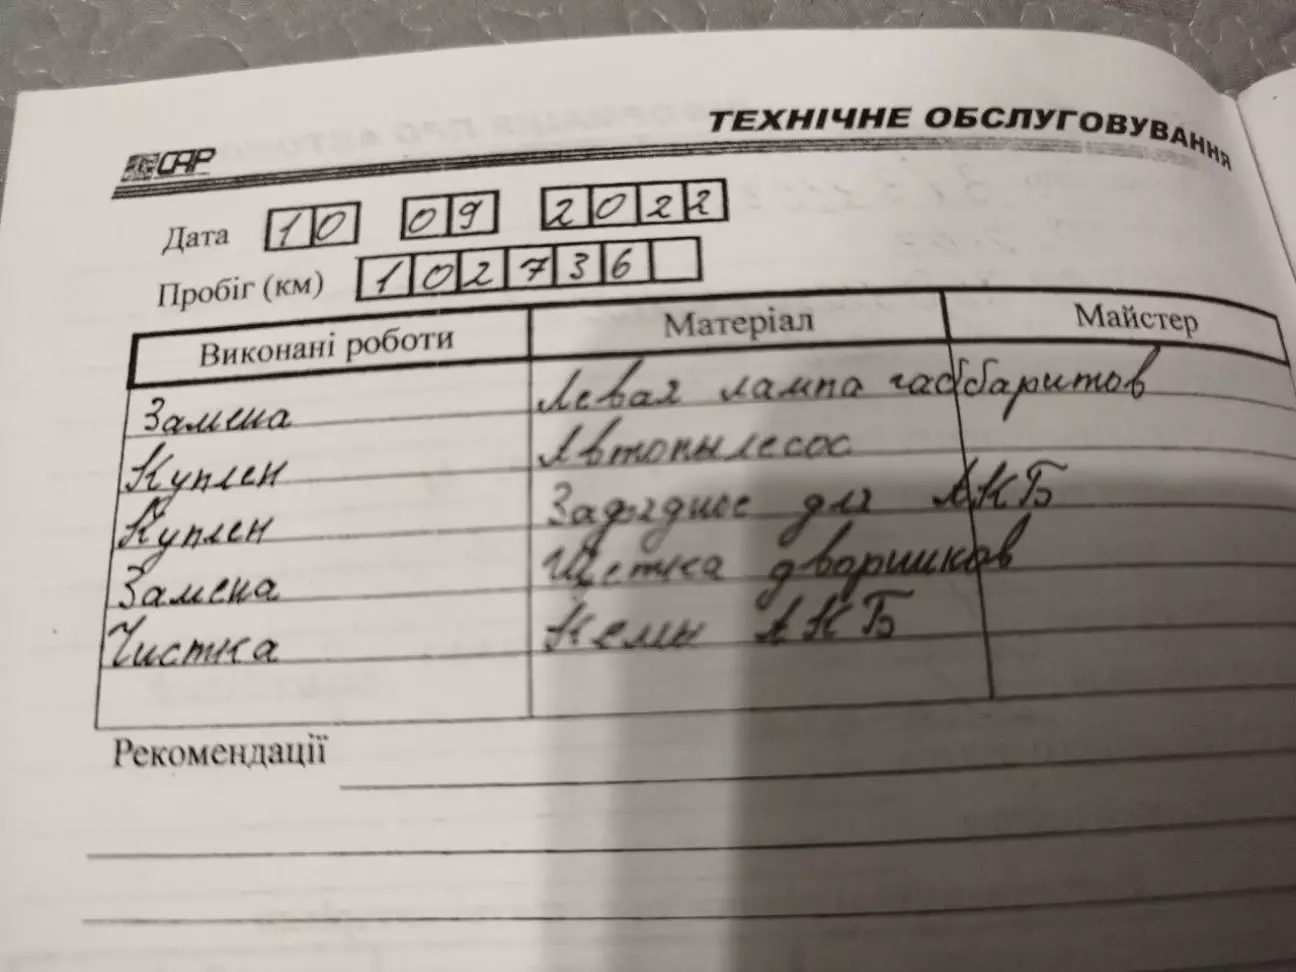 ТЕХНІЧНЕ ОБСЛУГОВУВАННЯ
CAP
Дата 10 09 2022
Пробіг (км) 102736
Виконані роботи Матеріал Майстер
Замена Левая лампа габбаритов
Куплен Автопылесос
Куплен Зарядное для АКБ
Замена Щетка дворников
Чистка Клемы АКБ
Рекомендації